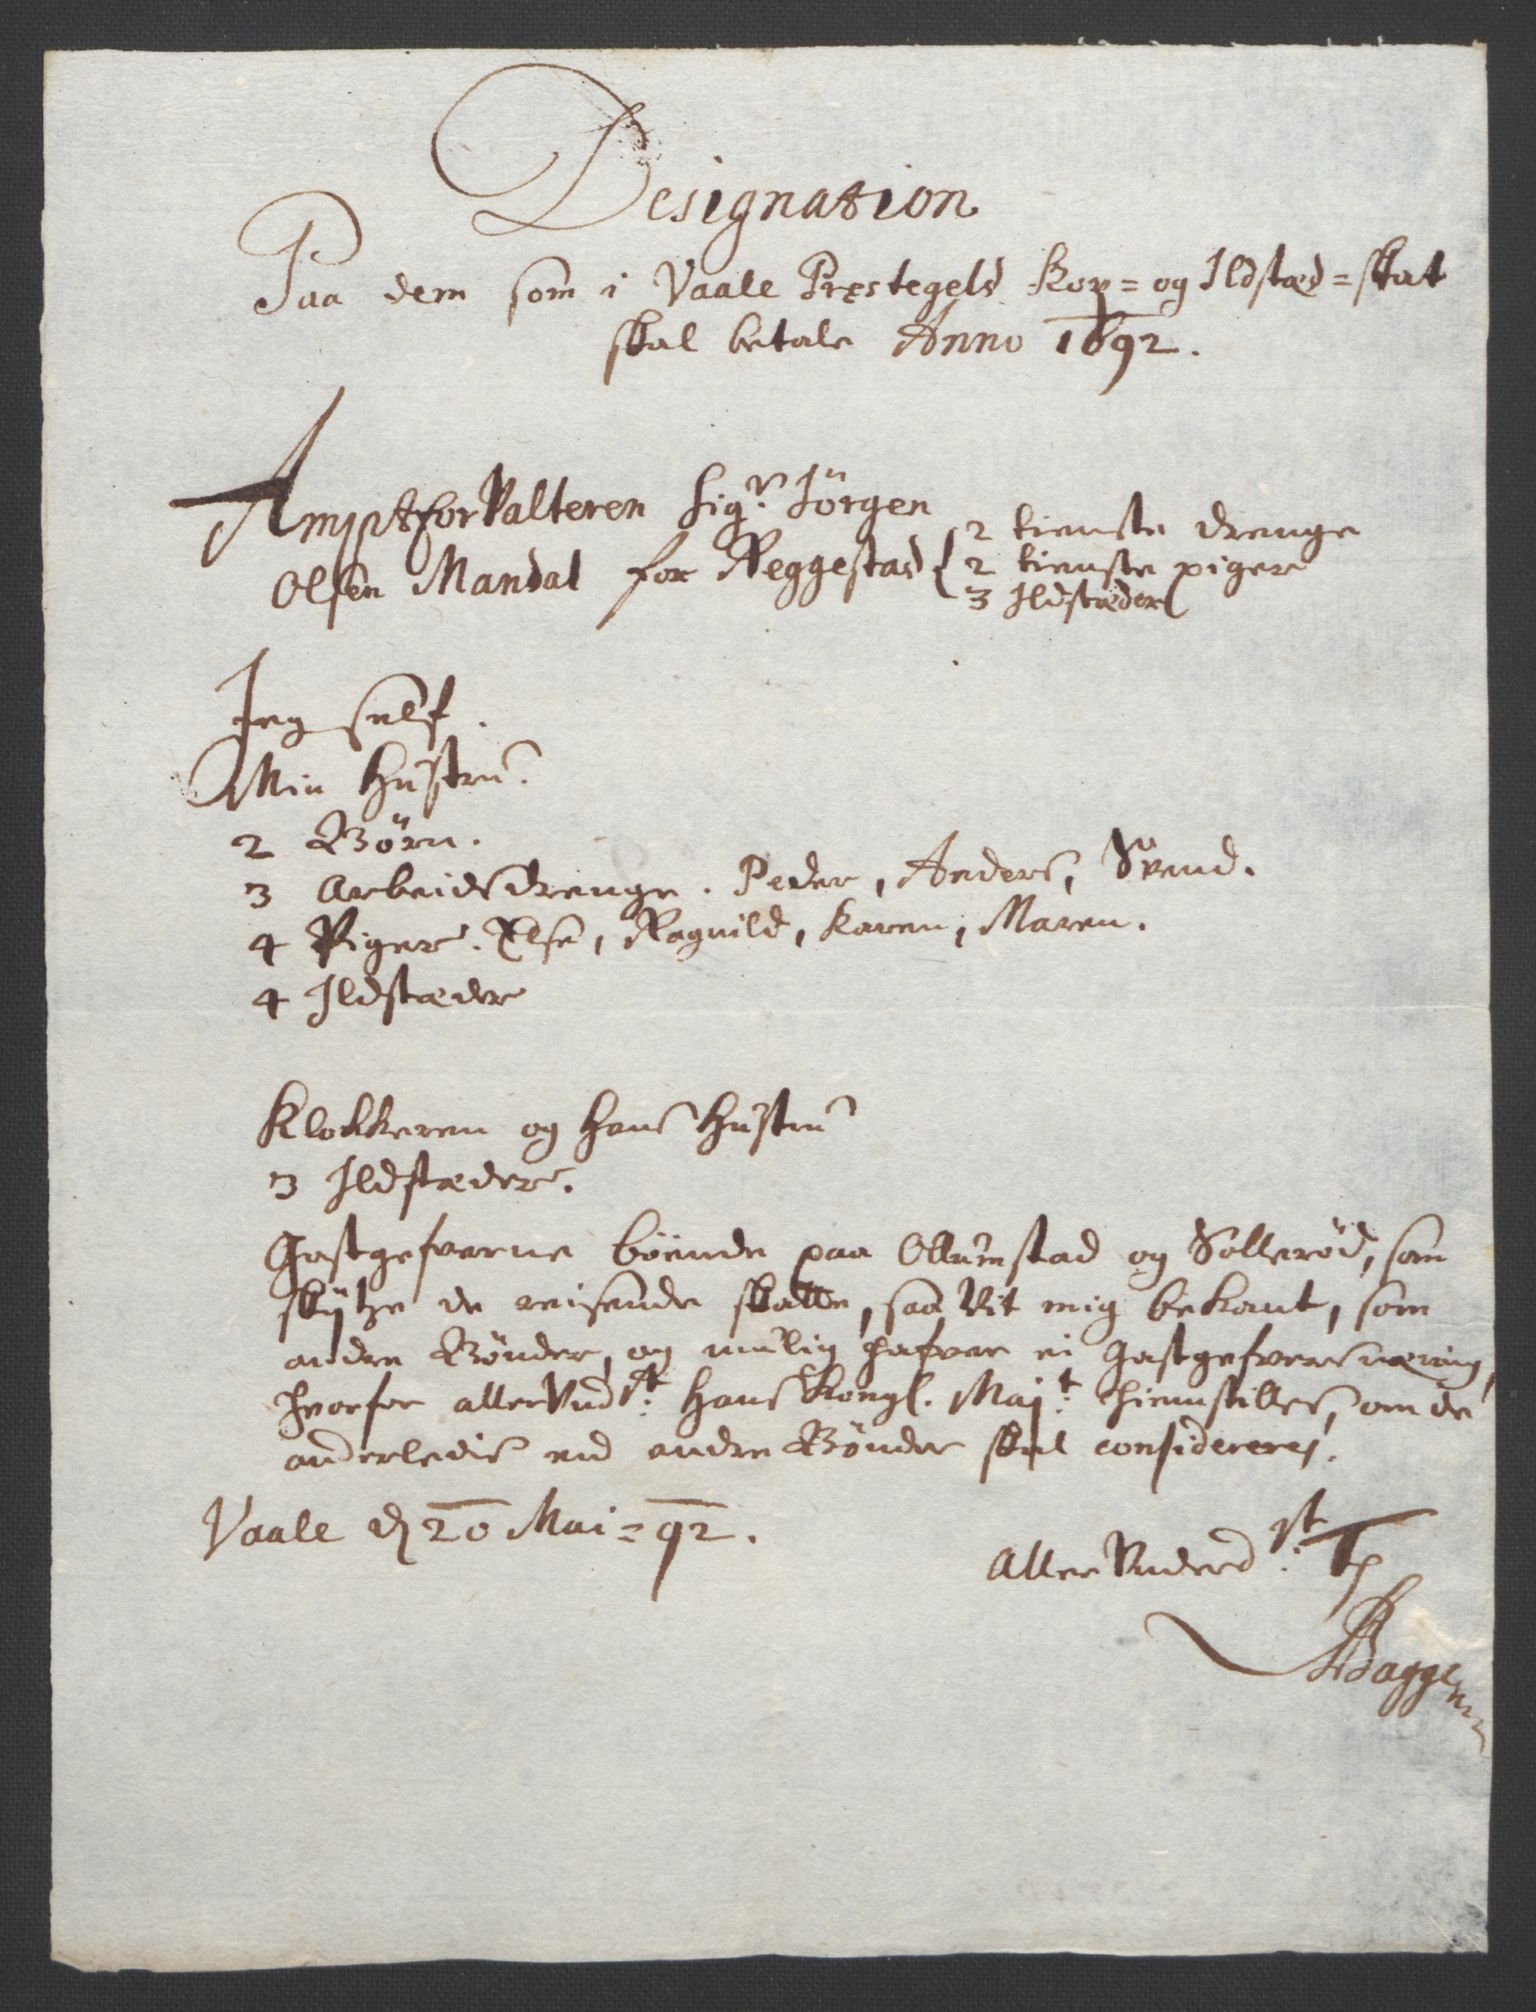 Designation
Paa dem som i Vaale Prestegeld Kop= og Ildstæd=skat
skal betale Anno 1692.
Amptforvalteren Sigr. Jörgen
Olsen Mandal for Reggestad { 2 tienste drenge
2 tienste piger
3 Ildstæder
Jeg self.
Min Hustru.
2 Börn.
3 Arbeidsdrenge. Peder, Anders, Svend.
4 Piger. Else, Ragnild, Karen, Maren.
4 Ildstæder
Klokkeren og hans Hustru
3 Ildstæder.
Gastgefverne böende paa Ollumstad og Solleröd, som
skÿtze de reisende skalle, saa vit mig bekant, som
andre Bönder, og mulig hafver ei Gastgefvers næring,
hvorfor allerVndst. Hans Kongl. Majt. hiemstilles, om de
anderledis end andre Bönder skal considereris.
Vaale d 20 Mai = 92.
AllerVnderdst.
Bagge